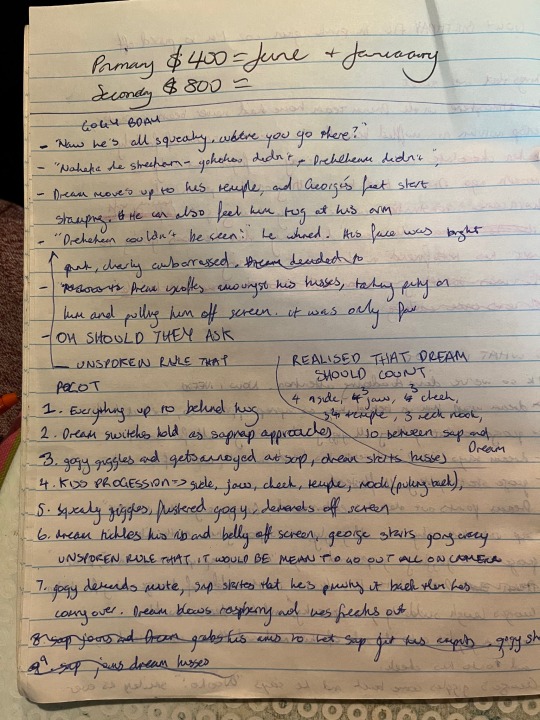 Primary $400 = June + January
Secondy $800 =
GOGY BOAH
- "Now he's all squeaky, where you go there?"
- "Naheke the streeham - yohohou didn't, Dreheheam didn't",
- Dream moves up to his temple, and George's feet start
stamping. He can also feel him tug at his arm
- "Drehehem couldn't be seen" he whined. His face was bright
pink, clearly embarrassed. Dream decided to
- Dream scoffs amongst his kisses, taking pity on
him and pulling him off screen. it was only fair
- OH SHOULD THEY ASK
UNSPOKEN RULE THAT
REALISED THAT DREAM
SHOULD COUNT
4 side, jaw, cheek,
temple, 3 neck,
10 between sap and
Dream
PLOT
1. Everything up to behind hug
2. Dream switches hold as sapnap approaches
3. gogy giggles and gets annoyed at sap, dream starts kisses
4. KISS PROGESSION => side, jaw, cheek, temple, neck (pulling back),
5. squealy giggles, flustered gogy, demands off screen
6. dream tickles his rip and belly off screen, george starts going crazy
UNSPOKEN RULE THAT IT WOULD BE MEAN TO GO OUT ALL ON CAMERA
7. gogy demands mute, sap states that he's putting it back then he's
coming over. Dream blows raspberry and he freaks out
8. sap joins and Dream grabs his arms to let sap get his armpits. gogy
9. sap joins dream kisses